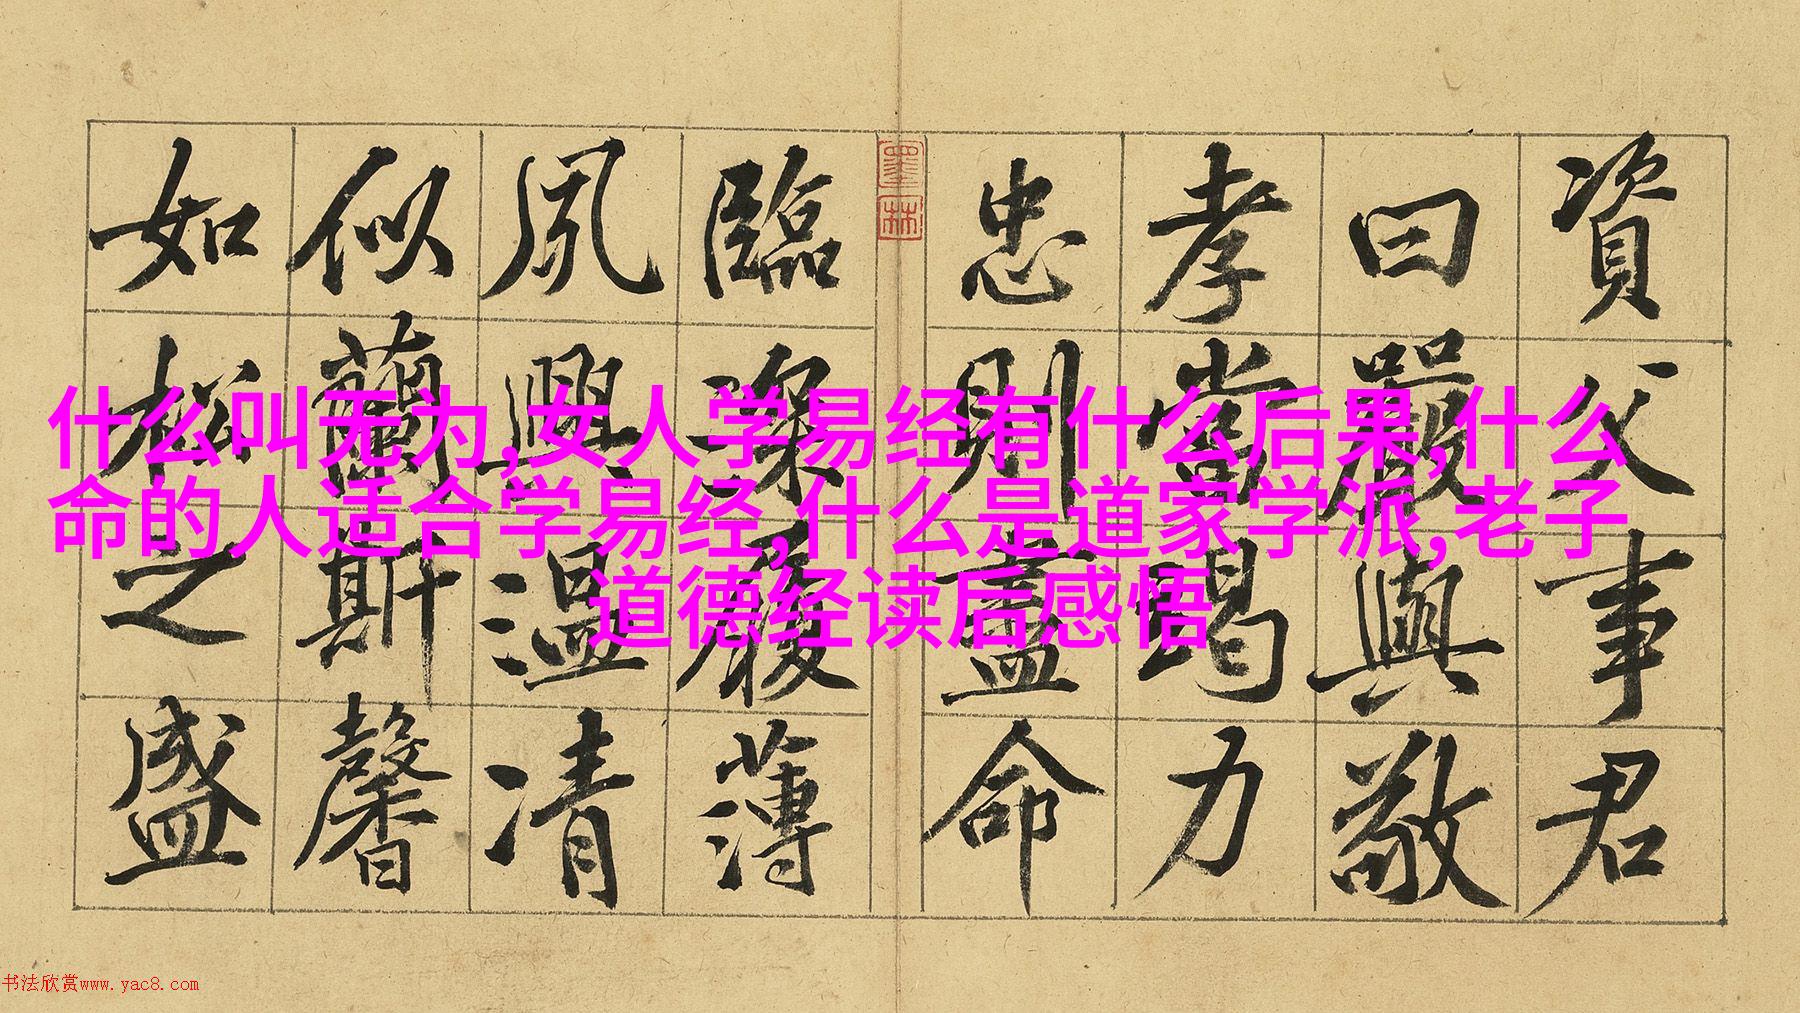 資父事君
曰嚴與敬
孝當竭力
忠則盡命
墨林
臨深履薄
夙興溫凊
似蘭斯馨
如松之盛
什么叫无为,女人学易经有什么后果,什么
命的人适合学易经,什么是道家学派,老子
道德经读后感悟
书法欣赏www.yac8.com